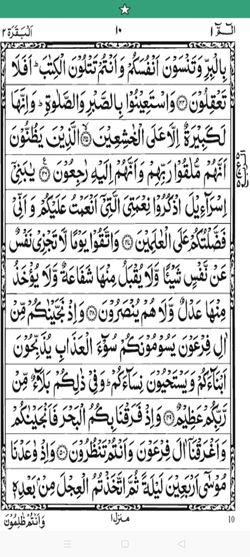 البقرة ٢
١٠
الم ١
بِالْبِرِّ وَتَنْسَوْنَ اَنْفُسَكُمْ وَاَنْتُمْ تَتْلُوْنَ الْكِتٰبَ ؕ اَفَلَا
تَعْقِلُوْنَ ﴿۴۴﴾ وَاسْتَعِيْنُوْا بِالصَّبْرِ وَالصَّلٰوةِ ؕ وَاِنَّهَا
لَكَبِيْرَةٌ اِلَّا عَلَى الْخٰشِعِيْنَ ﴿۴۵﴾ الَّذِيْنَ يَظُنُّوْنَ
اَنَّهُمْ مُّلٰقُوْا رَبِّهِمْ وَاَنَّهُمْ اِلَيْهِ رٰجِعُوْنَ ﴿۴۶﴾ يٰبَنِيْۤ
اِسْرَآءِيْلَ اذْكُرُوْا نِعْمَتِيَ الَّتِيْۤ اَنْعَمْتُ عَلَيْكُمْ وَاَنِّيْ
فَضَّلْتُكُمْ عَلَى الْعٰلَمِيْنَ ﴿۴۷﴾ وَاتَّقُوْا يَوْمًا لَّا تَجْزِيْ نَفْسٌ
عَنْ نَّفْسٍ شَيْـًٔا وَّلَا يُقْبَلُ مِنْهَا شَفَاعَةٌ وَّلَا يُؤْخَذُ
مِنْهَا عَدْلٌ وَّلَا هُمْ يُنْصَرُوْنَ ﴿۴۸﴾ وَاِذْ نَجَّيْنٰكُمْ مِّنْ
اٰلِ فِرْعَوْنَ يَسُوْمُوْنَكُمْ سُوْٓءَ الْعَذَابِ يُذَبِّحُوْنَ
اَبْنَآءَكُمْ وَيَسْتَحْيُوْنَ نِسَآءَكُمْ ؕ وَفِيْ ذٰلِكُمْ بَلَآءٌ مِّنْ
رَّبِّكُمْ عَظِيْمٌ ﴿۴۹﴾ وَاِذْ فَرَقْنَا بِكُمُ الْبَحْرَ فَاَنْجَيْنٰكُمْ
وَاَغْرَقْنَاۤ اٰلَ فِرْعَوْنَ وَاَنْتُمْ تَنْظُرُوْنَ ﴿۵۰﴾ وَاِذْ وٰعَدْنَا
مُوْسٰٓى اَرْبَعِيْنَ لَيْلَةً ثُمَّ اتَّخَذْتُمُ الْعِجْلَ مِنْۢ بَعْدِهٖ
وَاَنْتُمْ ظٰلِمُوْنَ
منزل ١
10